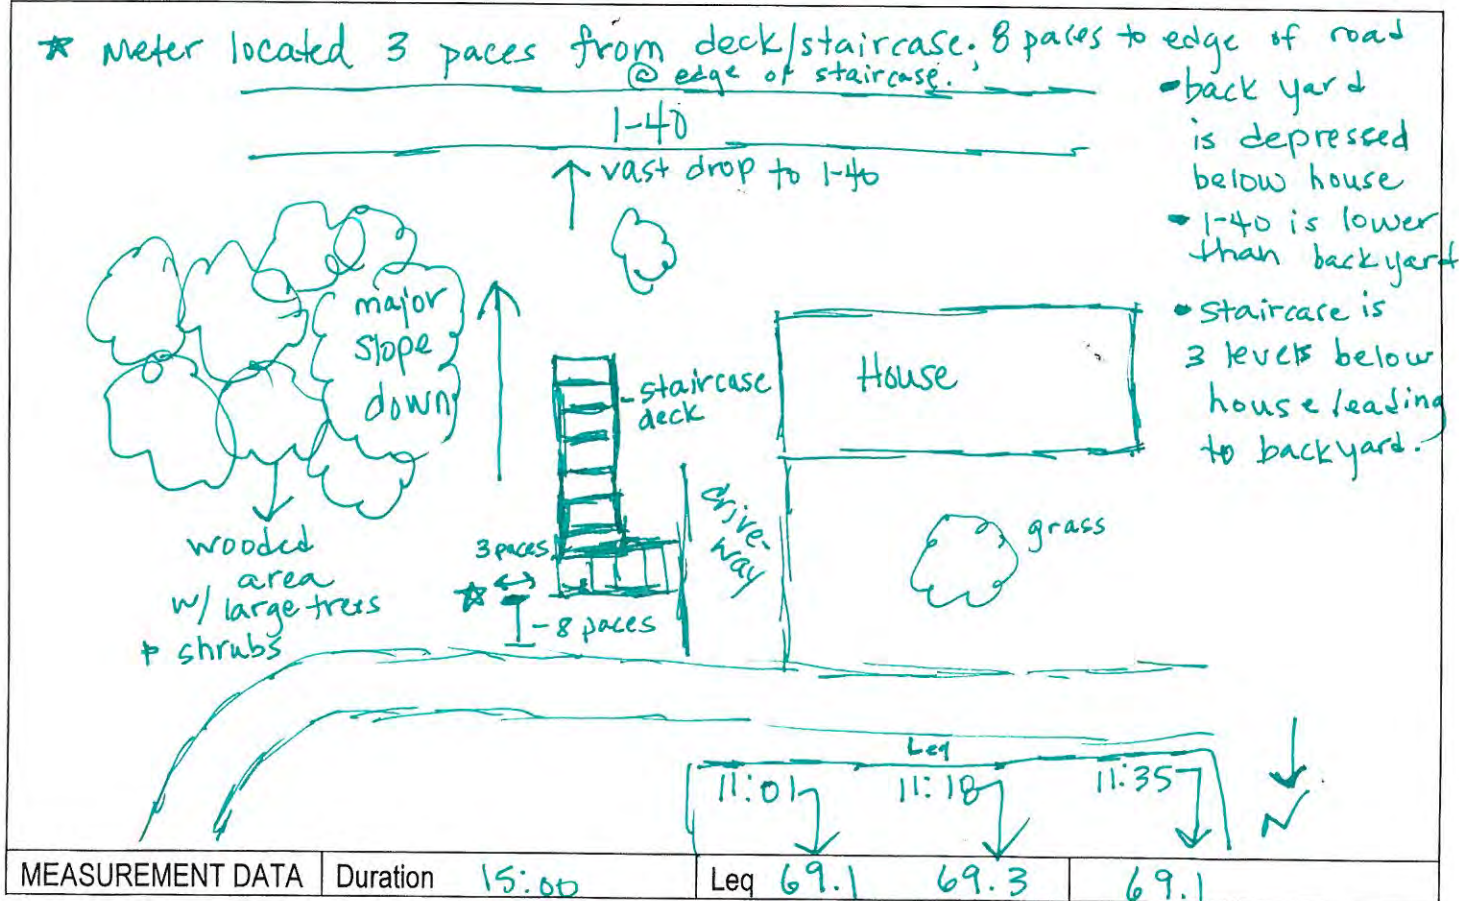 ☆ Meter located 3 paces from deck/staircase; 8 paces to edge of road
@ edge of staircase.
- back yard
is depressed
below house
- I-40 is lower
than backyard
- Staircase is
3 levels below
house leading
to backyard.
I-40
↑ vast drop to I-40
major
slope
down
House
- staircase
deck
drive-
way
grass
wooded
area
w/ large trees
& shrubs
3 paces
☆
- 8 paces
Leq
11:01 11:18 11:35
N
MEASUREMENT DATA Duration 15:00 Leq 69.1 69.3 69.1